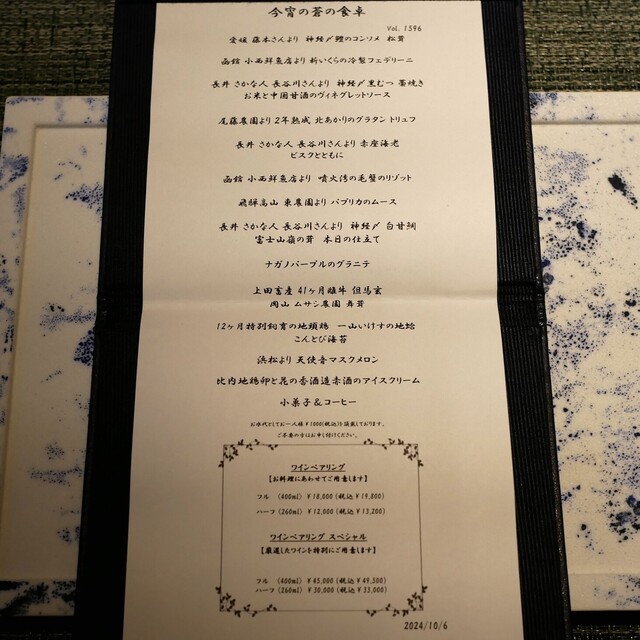 今宵の蒼の食卓
Vol. 1596
愛媛 藤本さんより 神経〆鱧のコンソメ 松茸
函館 小西鮮魚店より 新いくらの冷製フェデリーニ
長井 さかな人 長谷川さんより 神経〆黒むつ 藁焼き
お米と中国甘酒のヴィネグレットソース
尾藤農園より 2年熟成 北あかりのグラタン トリュフ
長井 さかな人 長谷川さんより 赤座海老
ビスクとともに
函館 小西鮮魚店より 噴火湾の毛蟹のリゾット
飛騨高山 東農園より パプリカのムース
長井 さかな人 長谷川さんより 神経〆 白甘鯛
富士山嶺の茸 本日の仕立て
ナガノパープルのグラニテ
上田畜産 41ヶ月雌牛 但馬玄
岡山 ムサシ農園 舞茸
12ヶ月特別飼育の地頭鶏 一山いけすの地蛤
こんとび海苔
浜松より 天使音マスクメロン
比内地鶏卵と花の香酒造赤酒のアイスクリーム
小菓子&コーヒー
お水代としてお一人様¥1000(税込)を頂戴しております。
ご不要の方はお申し付けください。
ワインペアリング
【お料理にあわせてご用意します】
フル (400ml) ¥18,000 (税込 ¥19,800)
ハーフ (260ml) ¥12,000 (税込 ¥13,200)
ワインペアリング スペシャル
【厳選したワインを特別にご用意します】
フル (400ml) ¥45,000 (税込 ¥49,500)
ハーフ (260ml) ¥30,000 (税込 ¥33,000)
2024/10/6